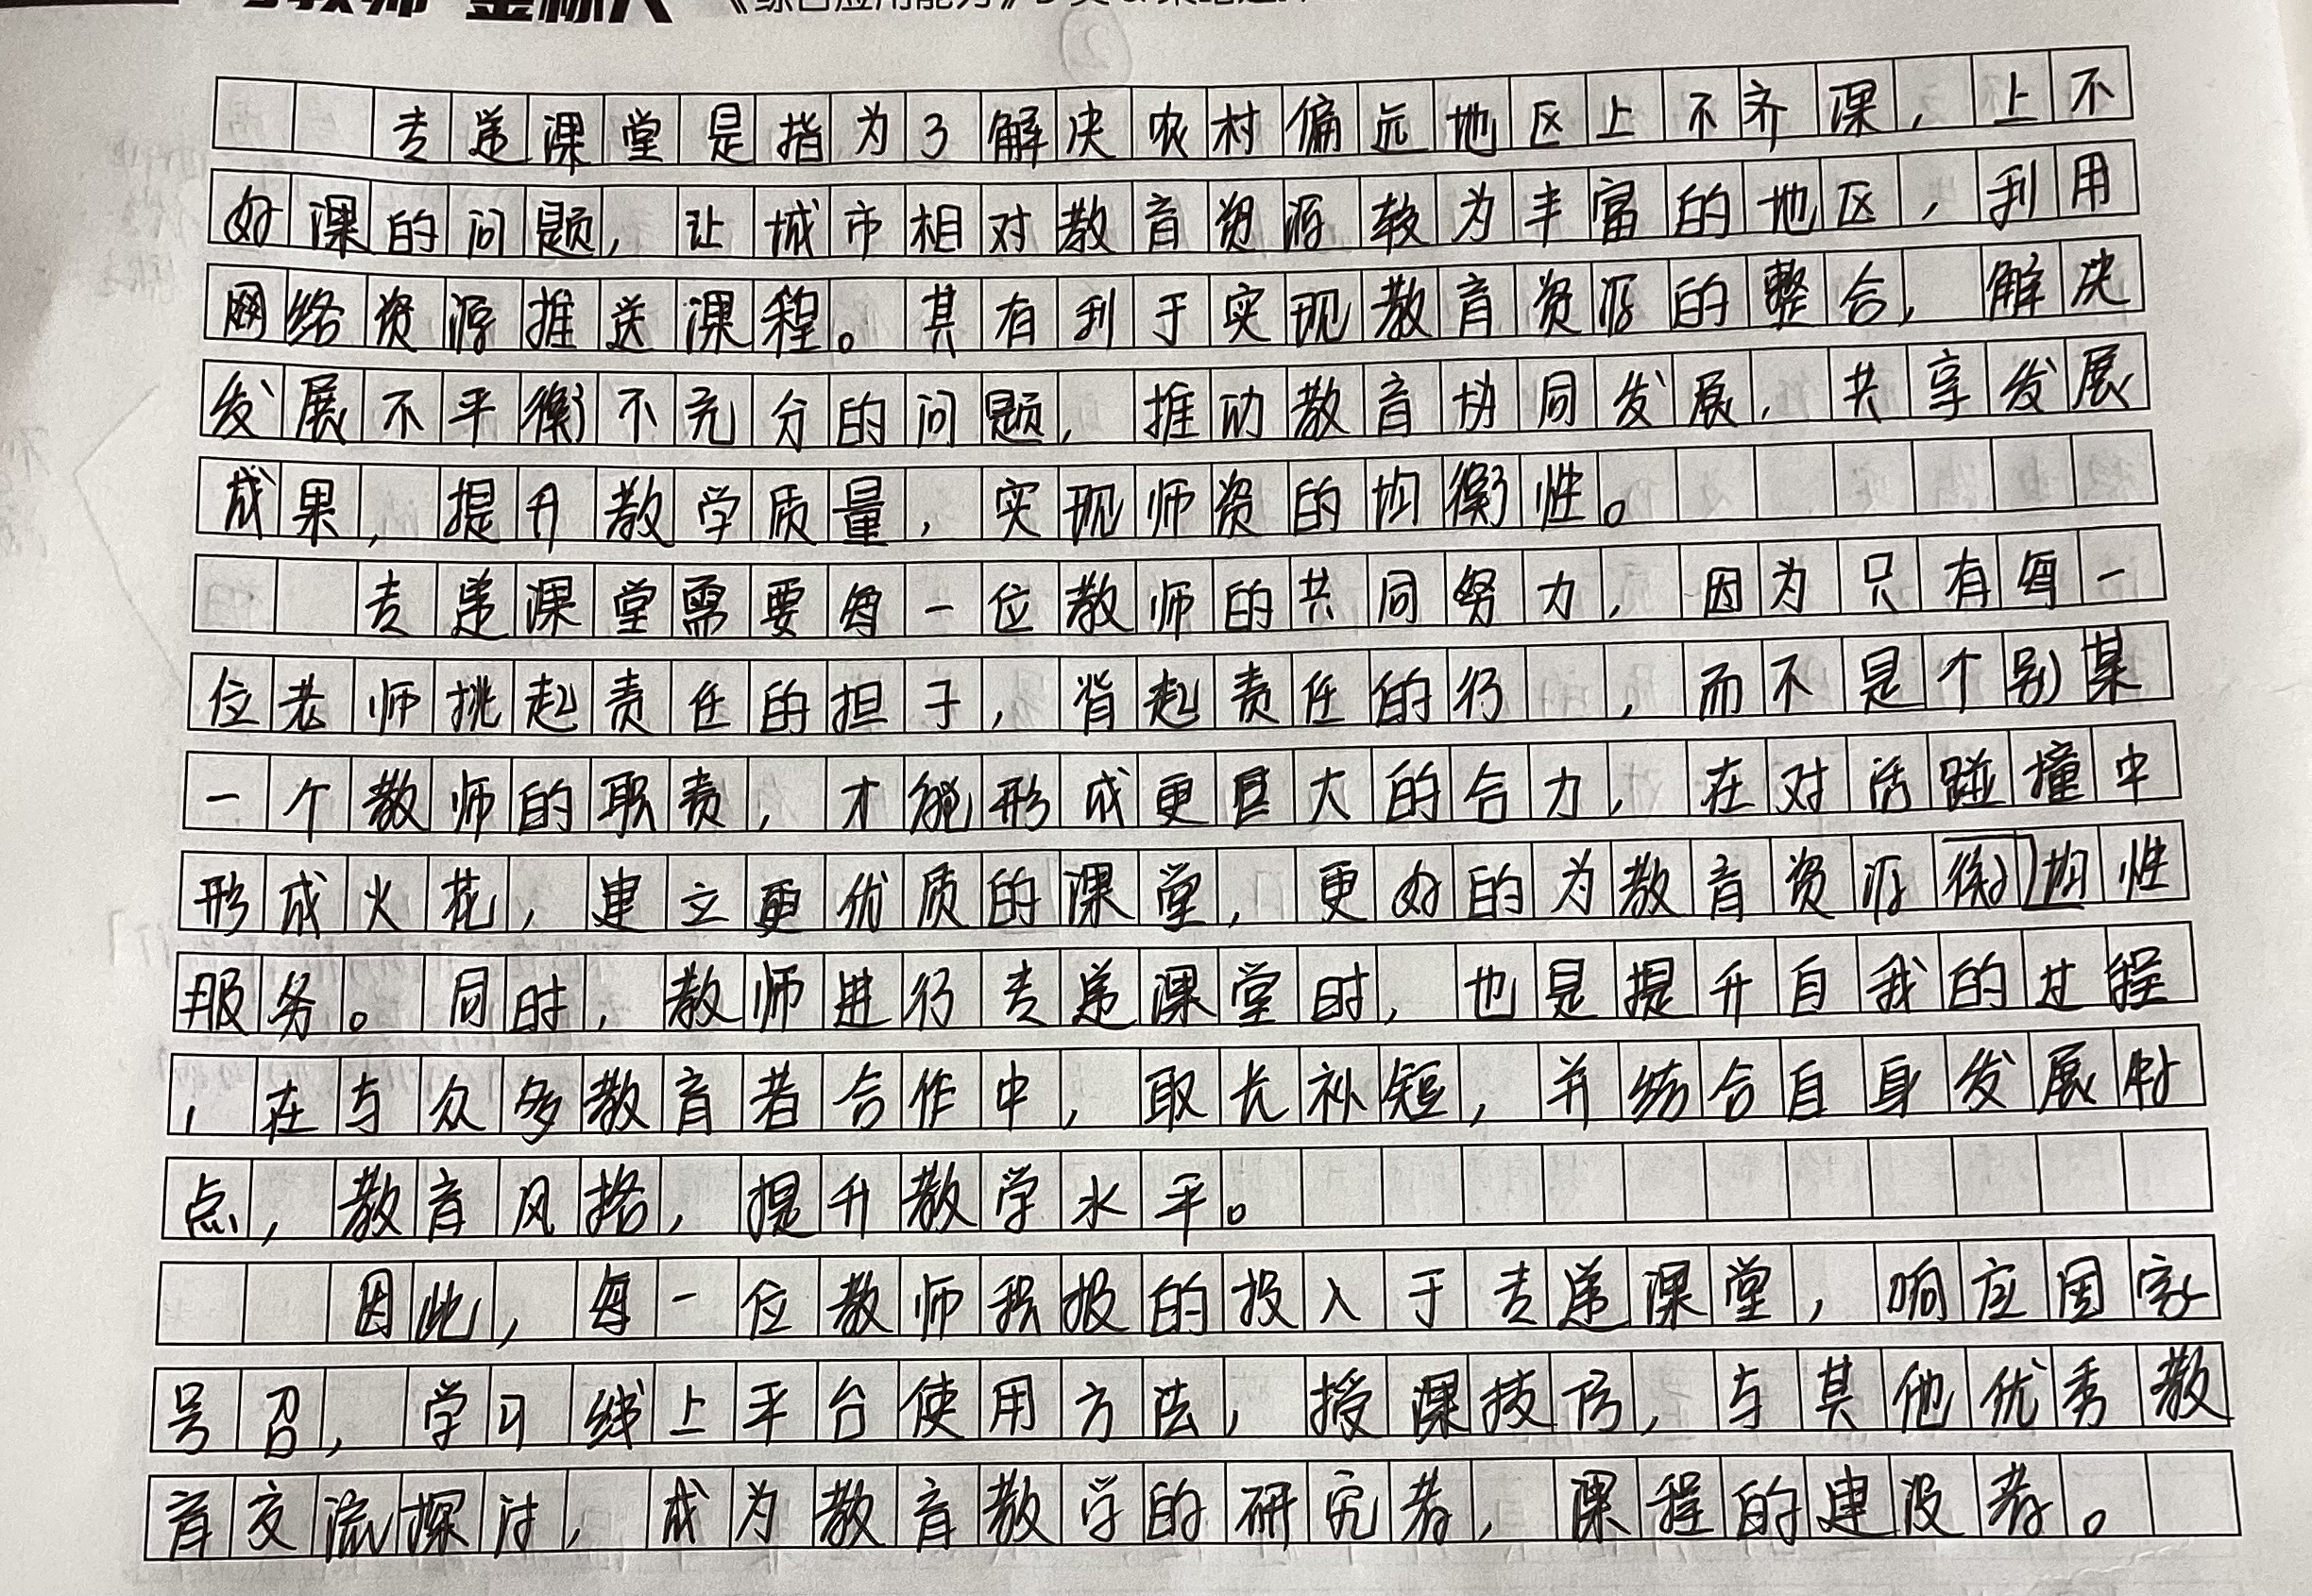 《综合应用能力》D类
②
专递课堂是指为了解决农村偏远地区上不齐课，上不
好课的问题，让城市相对教育资源较为丰富的地区，利用
网络资源推送课程。其有利于实现教育资源的整合，解决
发展不平衡不充分的问题，推动教育协同发展，共享发展
成果，提升教学质量，实现师资的均衡性。
专递课堂需要每一位教师的共同努力，因为只有每一
位老师挑起责任的担子，背起责任的行，而不是个别某
一个教师的职责，才能形成更巨大的合力，在对话碰撞中
形成火花，建立更优质的课堂，更好的为教育资源衡均性
服务。同时，教师进行专递课堂时，也是提升自我的过程
，在与众多教育者合作中，取长补短，并结合自身发展特
点，教育风格，提升教学水平。
因此，每一位教师积极的投入于专递课堂，响应国家
号召，学习线上平台使用方法，授课技巧，与其他优秀教
育交流探讨，成为教育教学的研究者，课程的建设者。